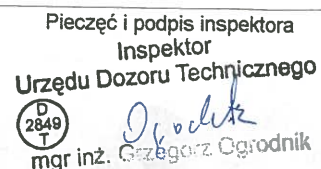 Pieczęć i podpis inspektora
Inspektor
Urzędu Dozoru Technicznego
D
2849
T
mgr inż. Grzegorz Ogrodnik